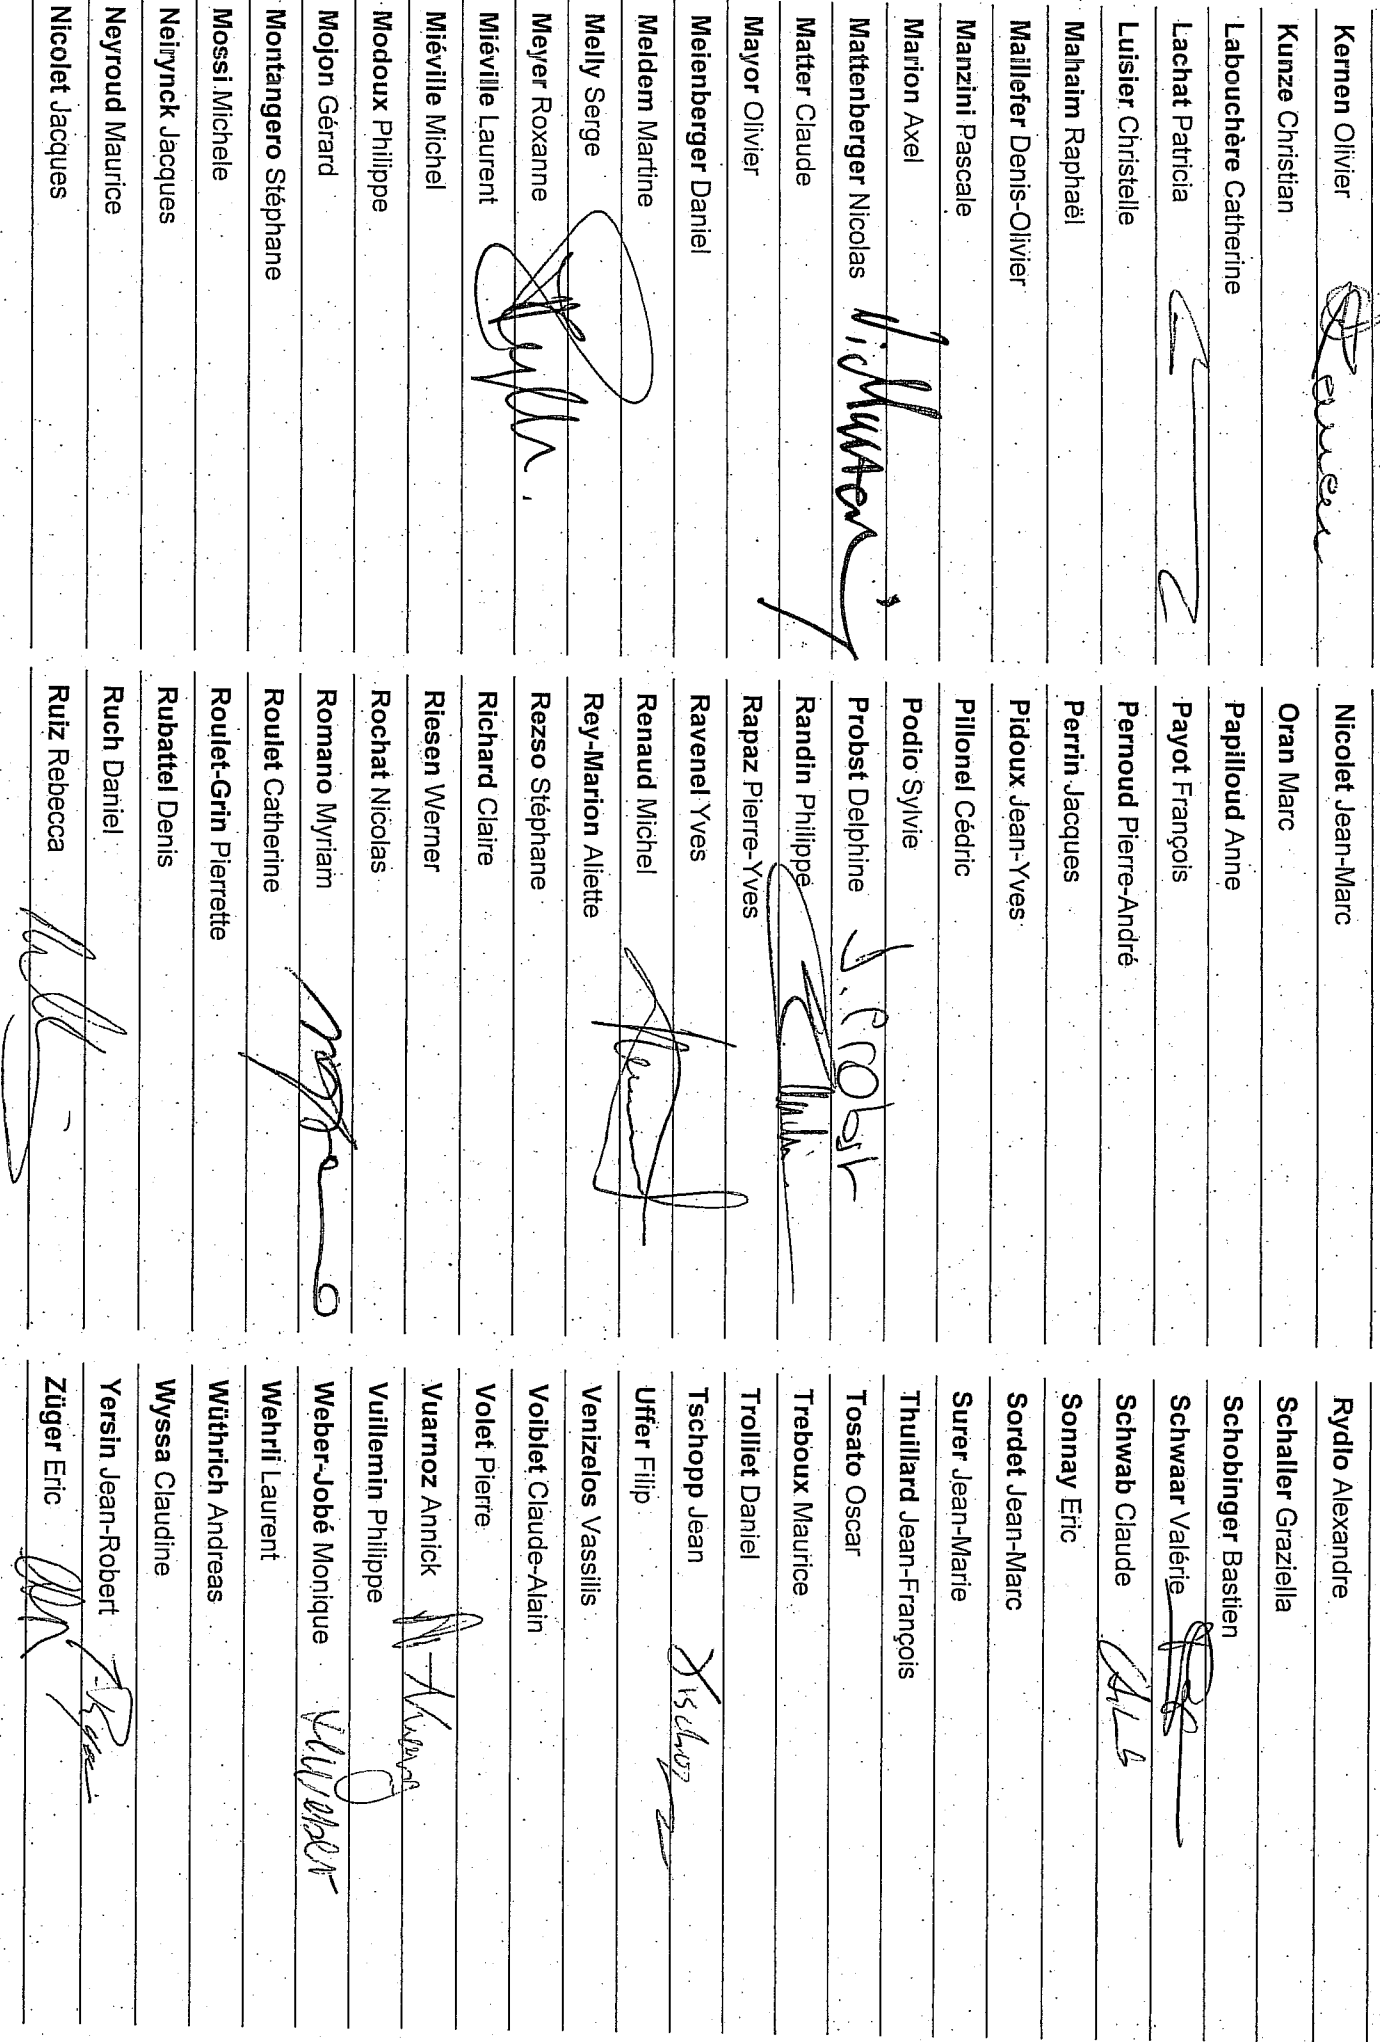 Kernen Olivier
Kunze Christian
Labouchère Catherine
Lachat Patricia
Luisier Christelle
Mahaim Raphaël
Maillefer Denis-Olivier
Manzini Pascale
Marion Axel
Mattenberger Nicolas
Matter Claude
Mayor Olivier
Meienberger Daniel
Meldem Martine
Melly Serge
Meyer Roxanne
Miéville Laurent
Miéville Michel
Modoux Philippe
Mojon Gérard
Montangero Stéphane
Mossi Michele
Neirynck Jacques
Neyroud Maurice
Nicolet Jacques
Nicolet Jean-Marc
Oran Marc
Papilloud Anne
Payot François
Pernoud Pierre-André
Perrin Jacques
Pidoux Jean-Yves
Pillonel Cédric
Podio Sylvie
Probst Delphine J. Probst
Randin Philippe
Rapaz Pierre-Yves
Ravenel Yves
Renaud Michel
Rey-Marion Aliette
Rezso Stéphane
Richard Claire
Riesen Werner
Rochat Nicolas
Romano Myriam
Roulet Catherine
Roulet-Grin Pierrette
Rubattel Denis
Ruch Daniel
Ruiz Rebecca
Rydlo Alexandre
Schaller Graziella
Schobinger Bastien
Schwaar Valérie
Schwab Claude
Sonnay Eric
Sordet Jean-Marc
Surer Jean-Marie
Thuillard Jean-François
Tosato Oscar
Treboux Maurice
Trolliet Daniel
Tschopp Jean
Uffer Filip
Venizelos Vassilis
Voiblet Claude-Alain
Volet Pierre
Vuarnoz Annick
Vuillemin Philippe
Weber-Jobé Monique
Wehrli Laurent
Wüthrich Andreas
Wyssa Claudine
Yersin Jean-Robert
Züger Eric